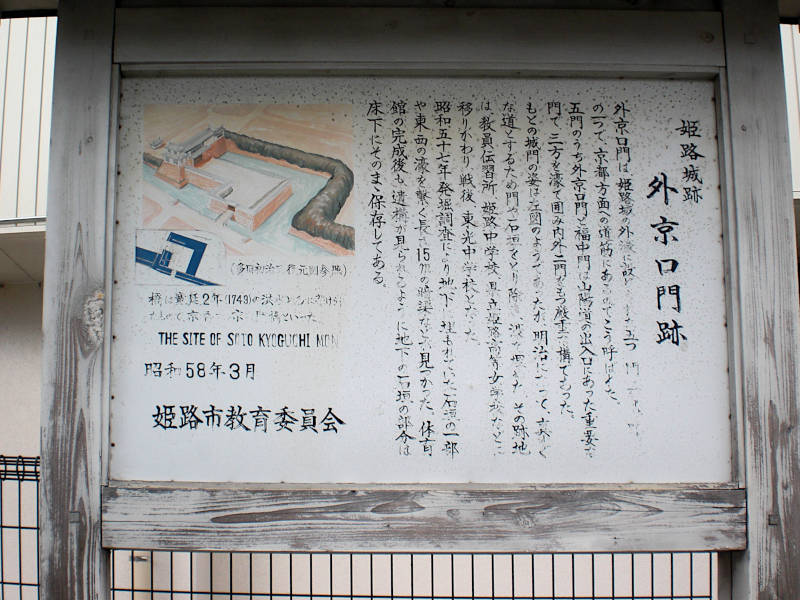 姫路城跡
外京口門跡
外京口門は、姫路城の外濠に設
の一つで、京都方面への道筋にあるのでこう呼ばれた。
五門のうち外京口門と福中門は山陽道の出入口にあった重要な
門で、三方を濠で囲み内外二門をもつ厳重な構であった。
もとの城門の姿は左図のようであったが、明治になって、
な道とするため門や石垣をとり除き、濠を埋めた。その跡地
は、教員伝習所、姫路中学校、県立姫路高等女学校などに
移りかわり、戦後、東光中学校となった。
昭和五十七年発掘調査により地下に埋もれていた石垣の一部
や東西の濠を繋ぐ長さ15mの暗渠などが見つかった。体育
館の完成後も、遺構が見られるように地下の石垣の部分は
床下にそのまゝ保存してある。
橋は寛延2年(1749)の洪水
THE SITE OF SOTO KYOGUCHI MON
昭和58年・3月
姫路市教育委員会